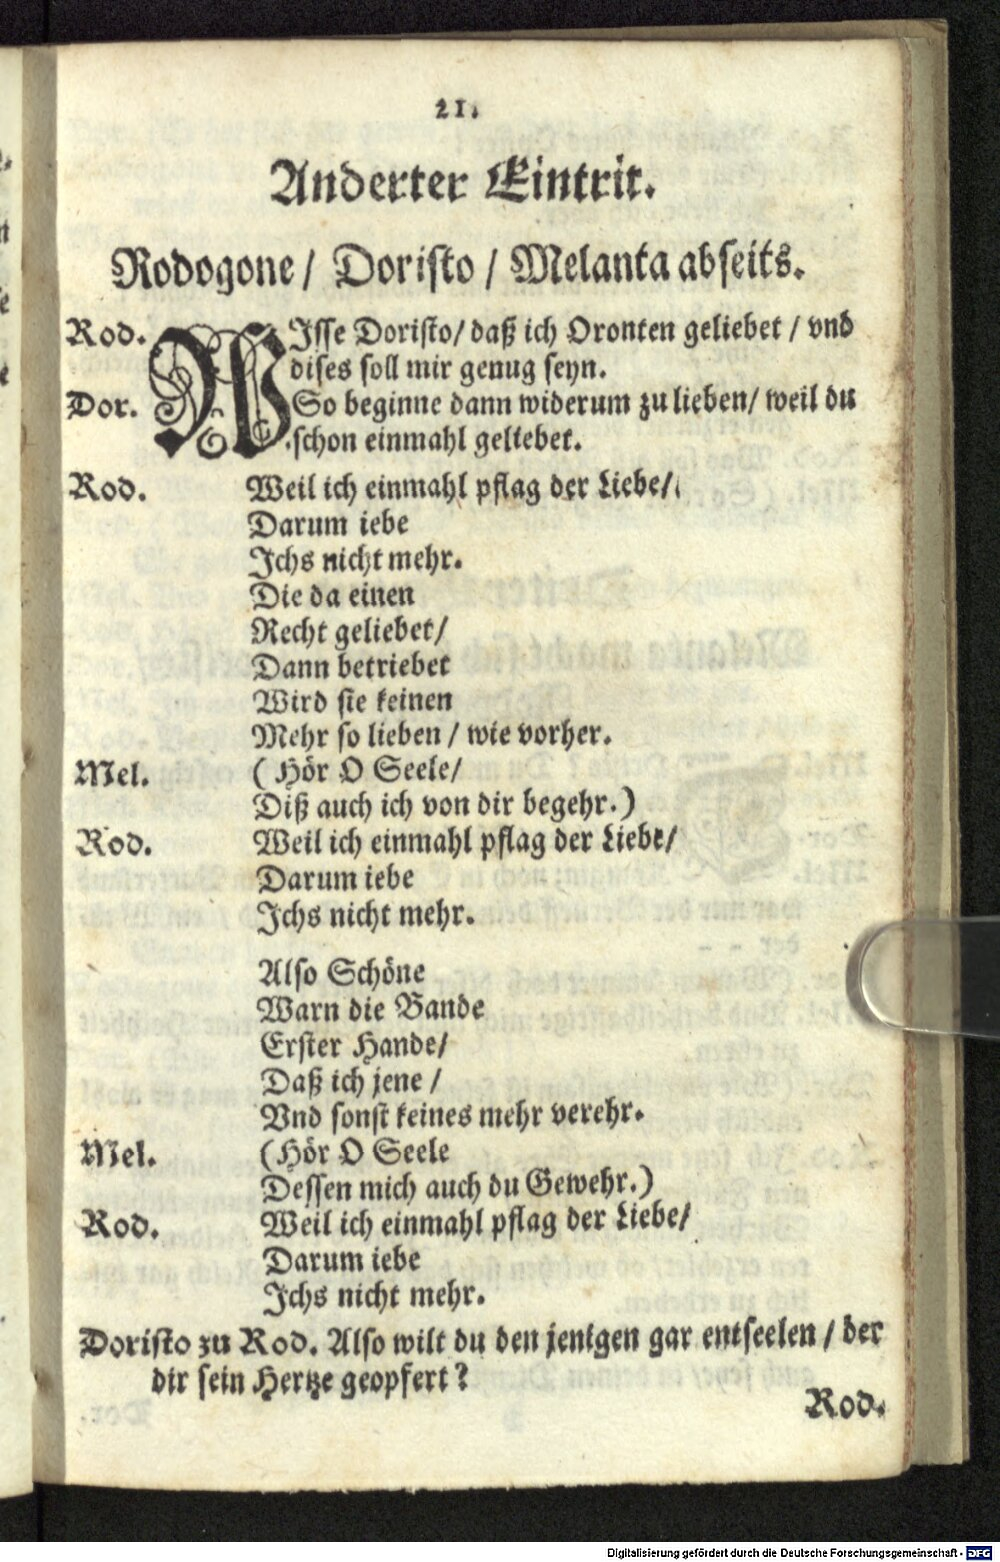 21.
Anderter Eintrit.
Rodogone / Doristo / Melanta abseits.
Rod. WIsse Doristo / daß ich Oronten geliebet / vnd
dises soll mir genug seyn.
Dor. So beginne dann widerum zu lieben / weil du
schon einmahl geliebet.
Rod. Weil ich einmahl pflag der Liebe /
Darum iebe
Ichs nicht mehr.
Die da einen
Recht geliebet /
Dann betriebet
Wird sie keinen
Mehr so lieben / wie vorher.
Mel. ( Hör O Seele /
Diß auch ich von dir begehr.)
Rod. Weil ich einmahl pflag der Liebe /
Darum iebe
Ichs nicht mehr.
Also Schöne
Warn die Bande
Erster Hande /
Daß ich jene /
Vnd sonst keines mehr verehr.
Mel. (Hör O Seele
Dessen mich auch du Gewehr.)
Rod. Weil ich einmahl pflag der Liebe /
Darum iebe
Ichs nicht mehr.
Doristo zu Rod. Also wilt du den jenigen gar entseelen / der
dir sein Hertze geopfert ?
Rod.
Digitalisierung gefördert durch die Deutsche Forschungsgemeinschaft - DFG